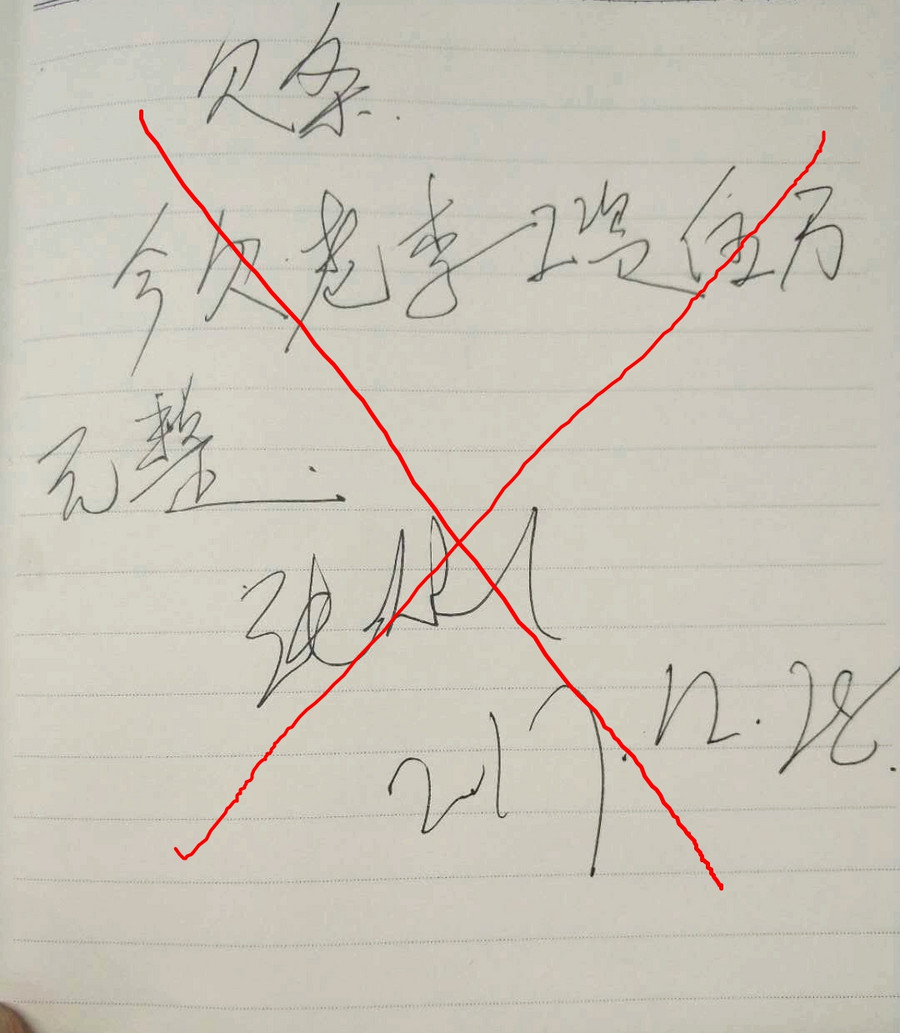 欠条.
今欠老李工资伍万
元整.
张
2017.12.28.